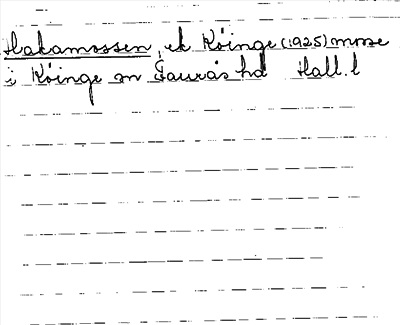 Hakamossen, ek Köinge (1925) mosse
i Köinge sn Faurås hd Hall. l